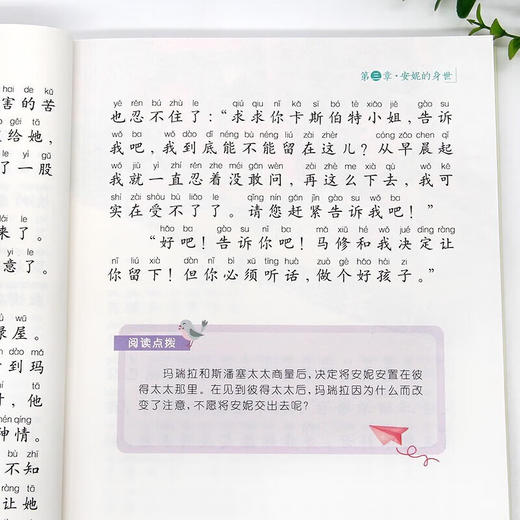 hai de kǔ
害的苦
给她，
le yì gǔ
了一股
lái le
来了。
意了。
wū
绿屋。
dào mǎ
到玛
时，他
zhǒng qíng
种情。
bù zhī
不知
ràng tā
让她
第三章·安妮的身世
yě rěn bú zhù le qiú qiu nǐ kǎ sī bó tè xiǎo jiě gào su
也忍不住了：“求求你卡斯伯特小姐，告诉
wǒ ba wǒ dào dǐ néng bù néng liú zài zhèr cóng zǎo chen qǐ
我吧，我到底能不能留在这儿？从早晨起
wǒ jiù yì zhí rěn zhe méi gǎn wèn zài zhème xia qù wǒ kě
我就一直忍着没敢问，再这么下去，我可
shí zài shòu bù liǎo le qǐng nín gǎn jǐn gào su wǒ ba
实在受不了了。请您赶紧告诉我吧！”
hǎo ba gào su nǐ ba mǎ xiū hé wǒ jué dìng ràng
“好吧！告诉你吧！马修和我决定让
nǐ liú xià dàn nǐ bì xū tīng huà zuò gè hǎo hái zi
你留下！但你必须听话，做个好孩子。”
阅读点拨
玛瑞拉和斯潘塞太太商量后，决定将安妮安置在彼
得太太那里。在见到彼得太太后，玛瑞拉因为什么而改
变了注意，不愿将安妮交出去呢？